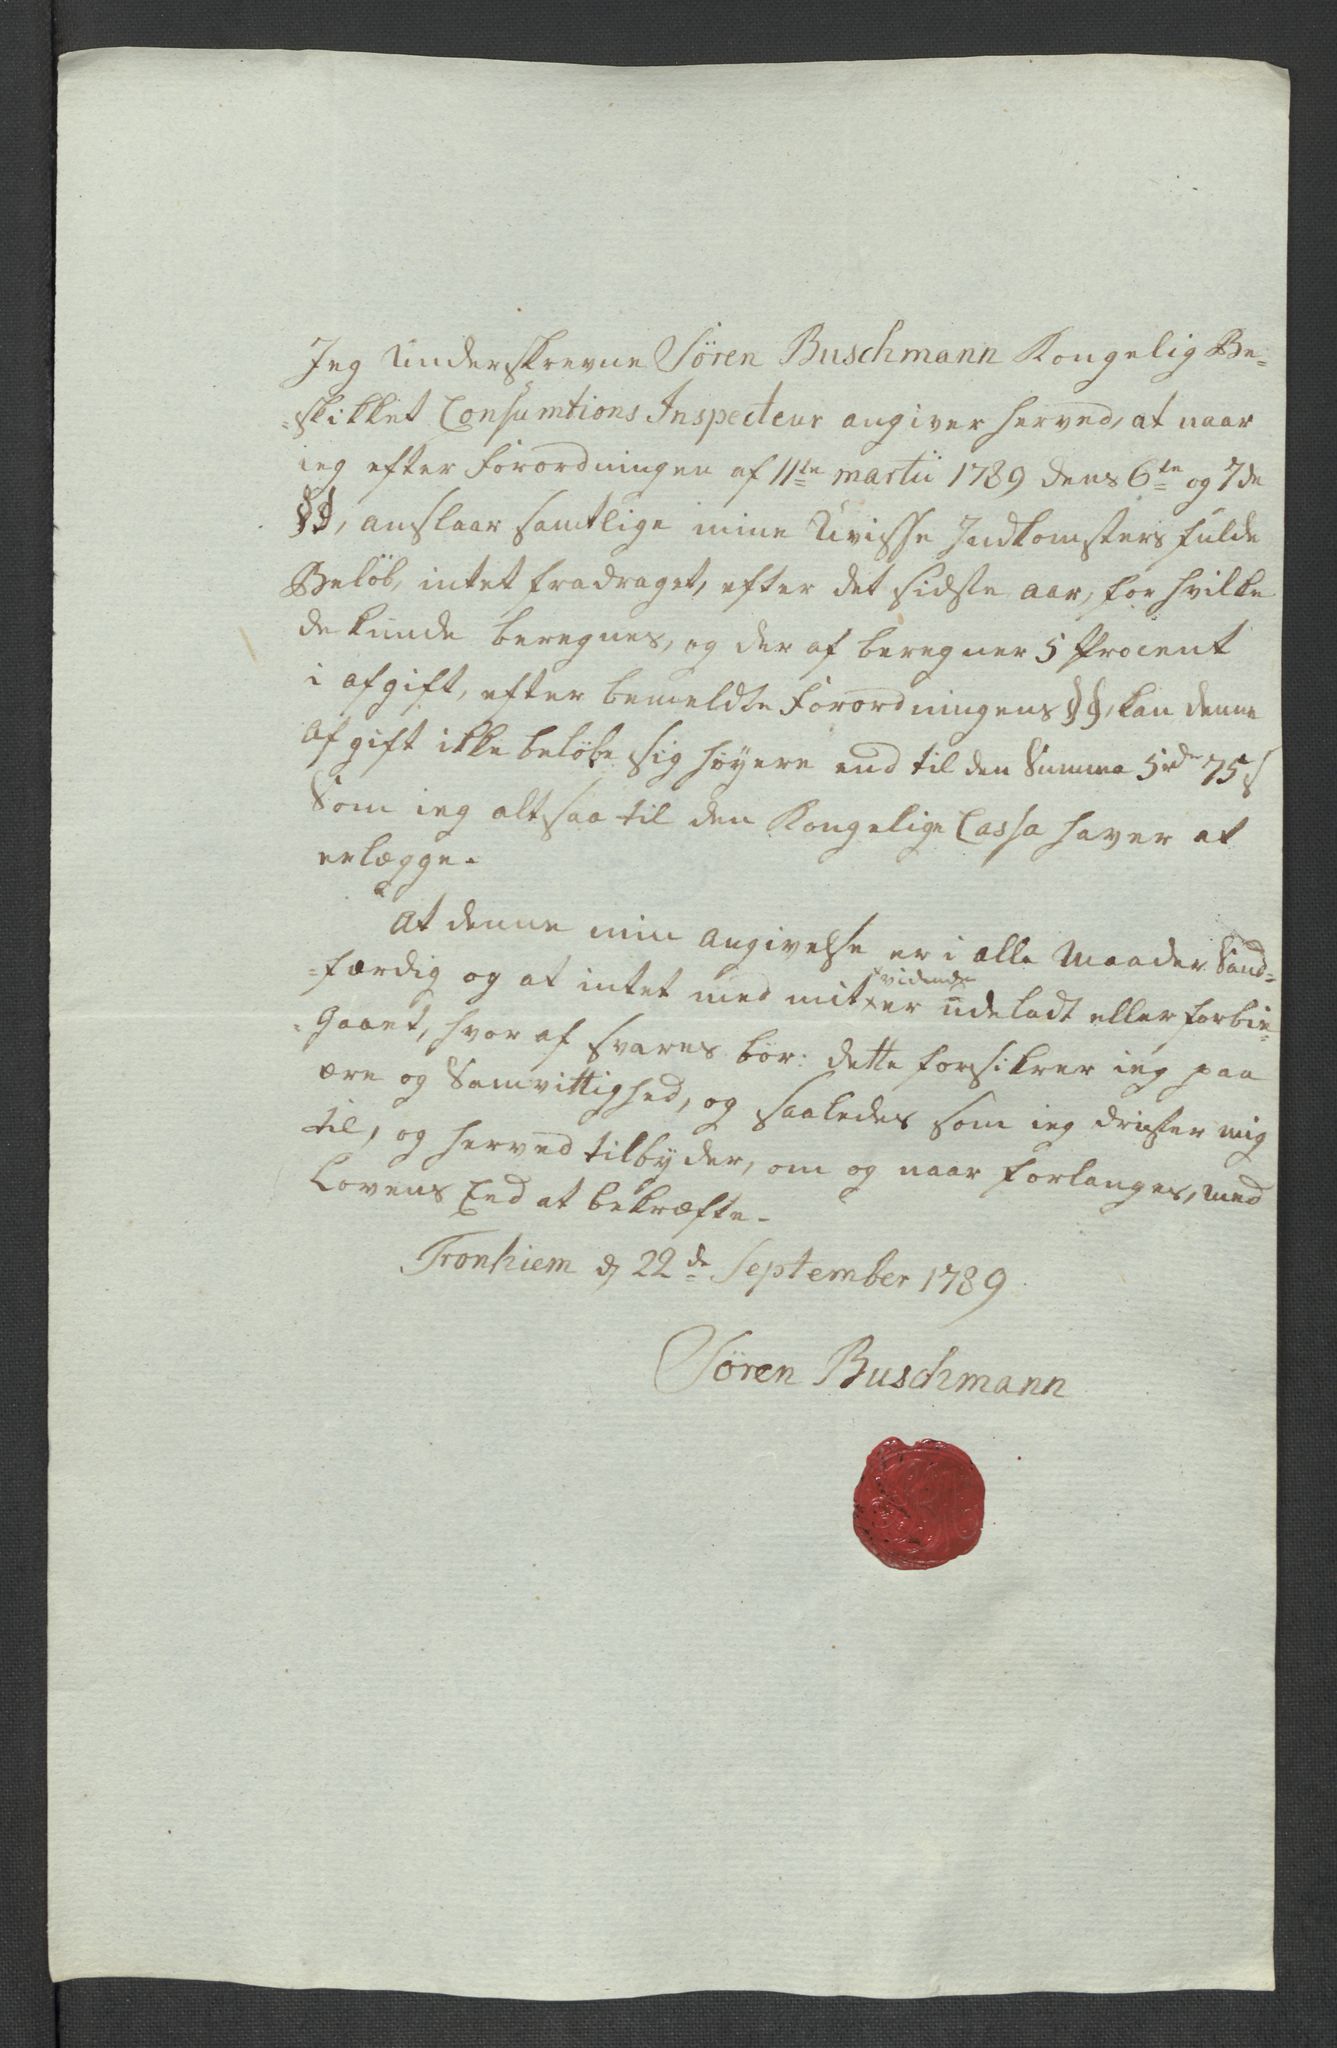 Jeg Underskrevne Sören Buschmann Kongelig Be-
-skikket Consumtions Inspecteur angiver herved, at naar
ieg efter Forordningen af 11te martii 1789 dens 6te og 7de
§§, anslaar samtlige mine Uvisse Indkomsters fulde
Beløb, intet fradraget, efter det sidste aar, for hvilke
de kunde beregnes, og der af beregner 5 Procent
i afgift, efter bemeldte Forordningens §§, kan denne
Afgift ikke beløbe sig høyere end til den Summa 5 rdr 75 s
Som ieg altsaa til den Kongelige Cassa haver at
erlægge.
At denne min Angivelse er i alle Maader Sand-
-færdig og at intet med mit vidende er udeladt eller forbie-
-gaaet, hvor af svares bør: dette forsikrer ieg paa
ære og Samvittighed, og saaledes som ieg drister mig
til, og herved tilbyder, om og naar forlanges, med
Lovens Eed at bekræfte.
Tronhiem d 22de September 1789
Sören Buschmann